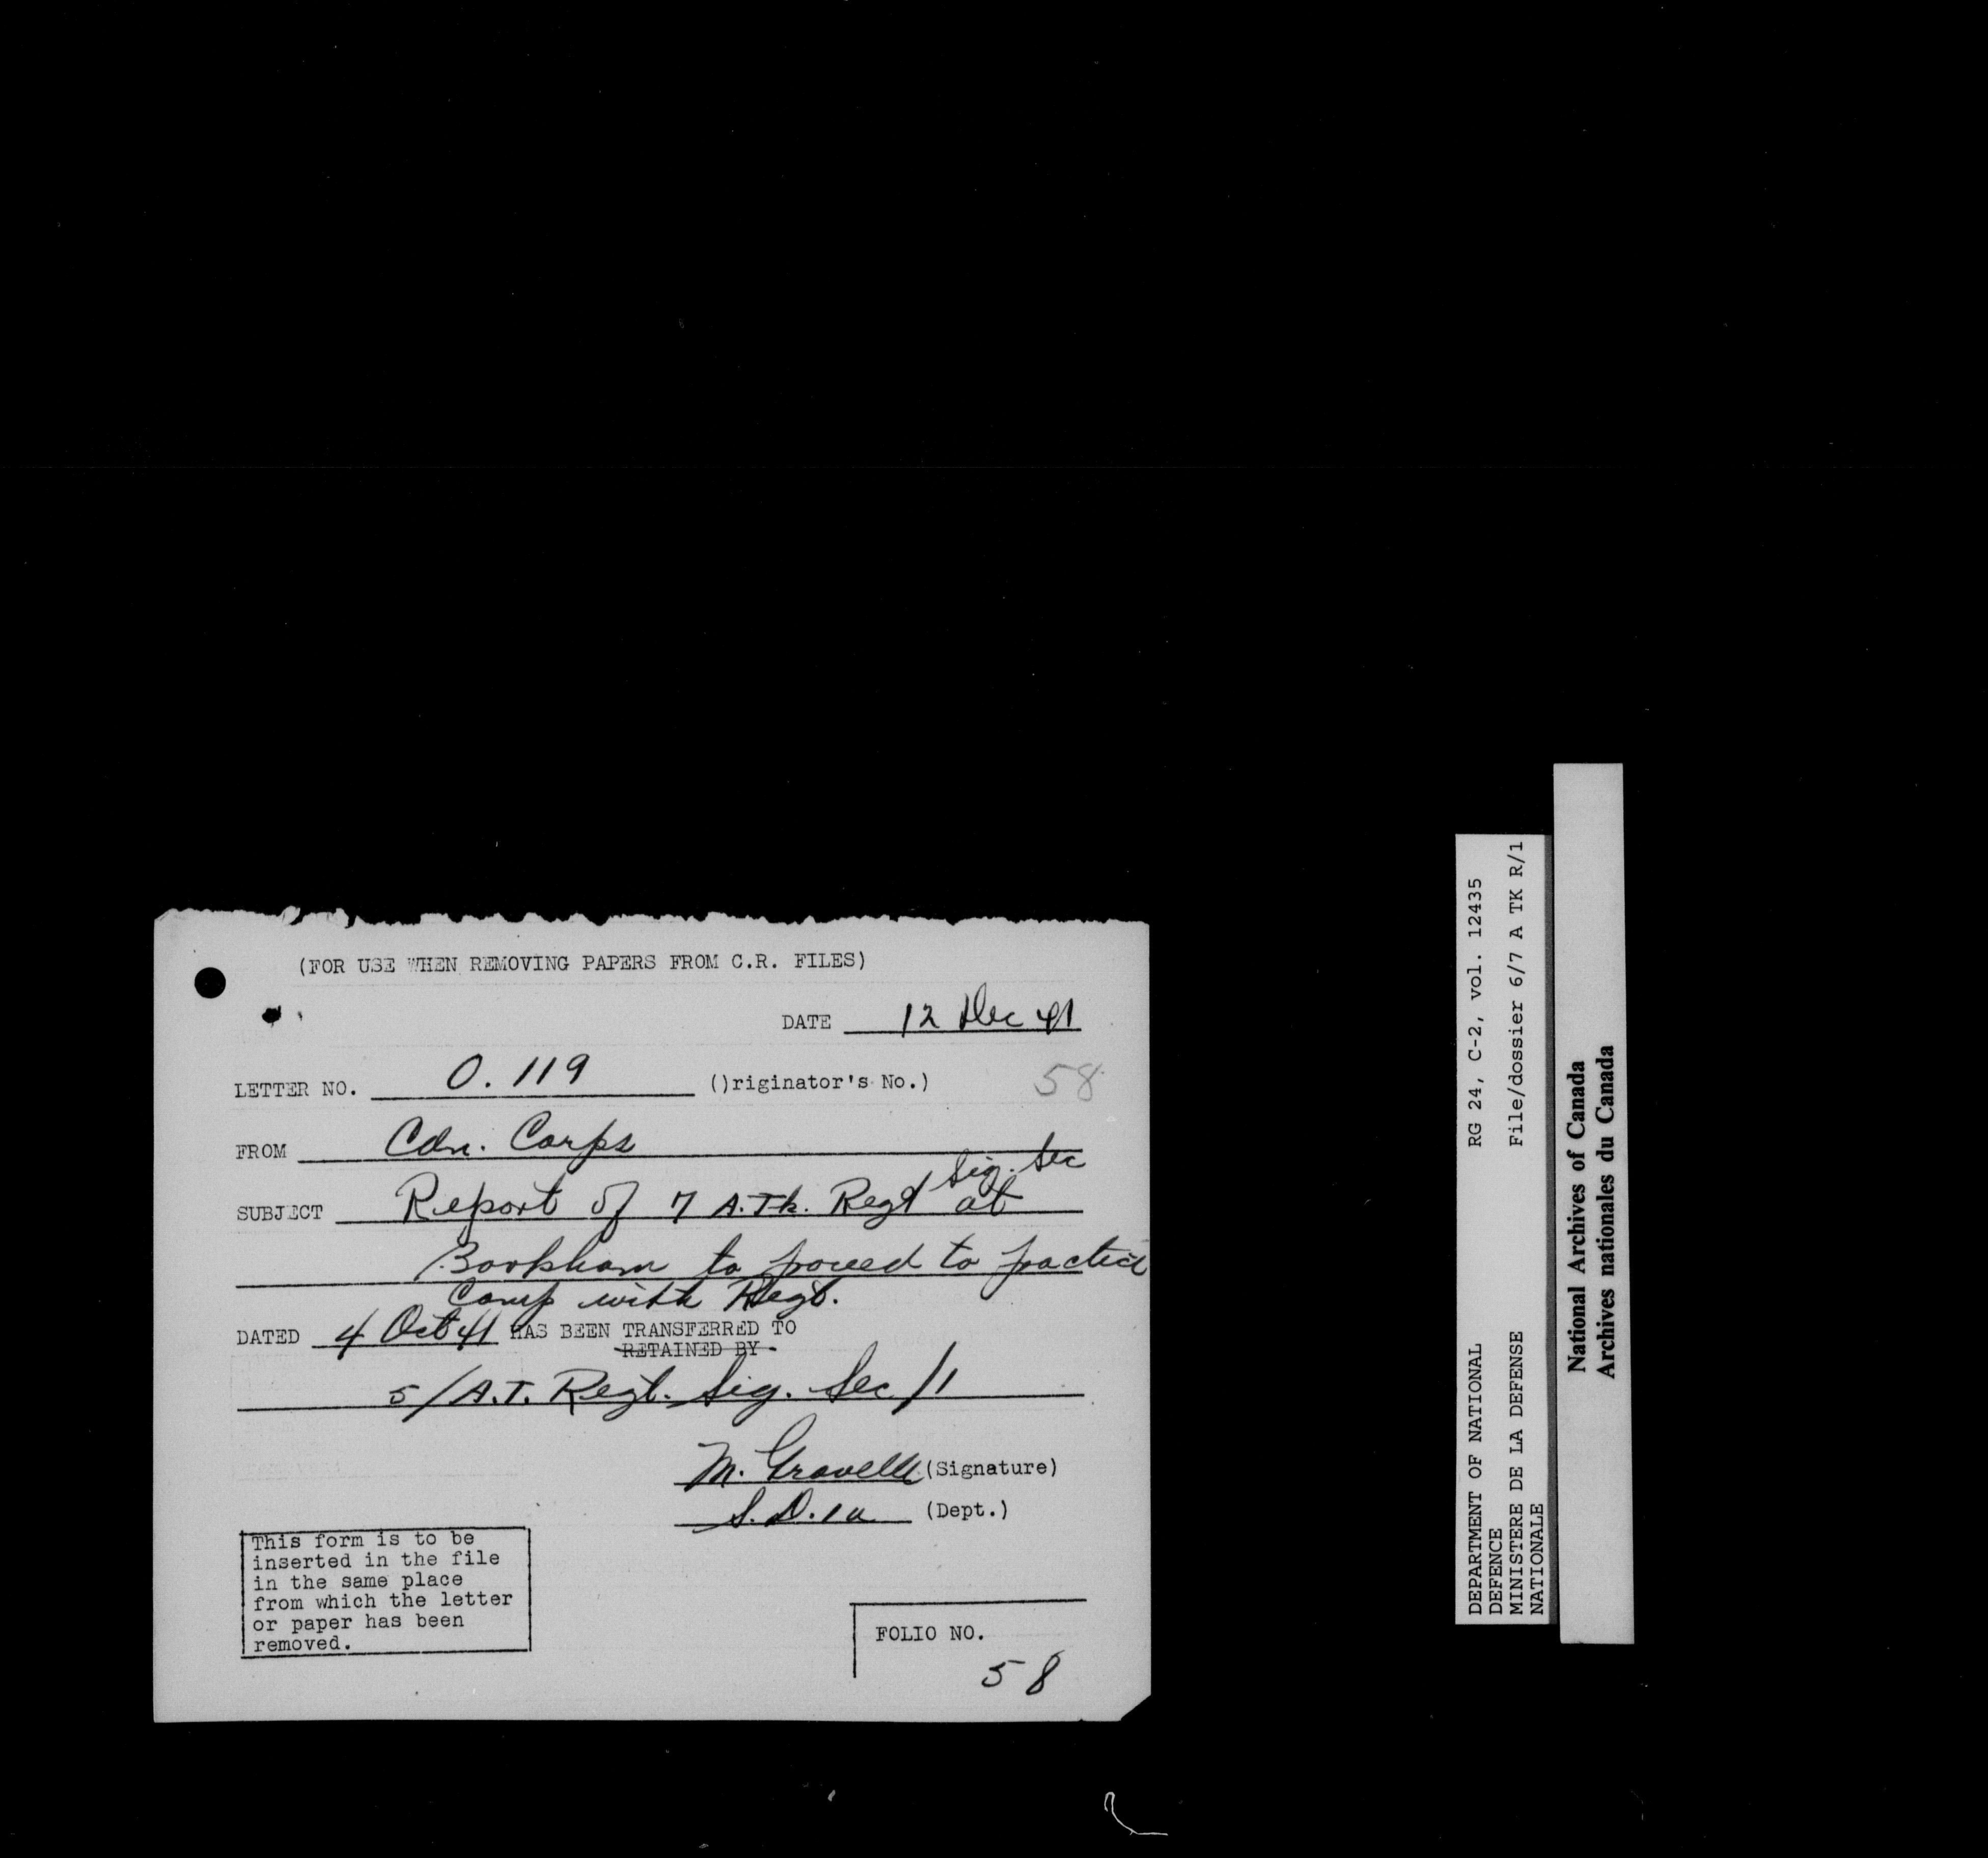 (FOR USE WHEN REMOVING PAPERS FROM C.R. FILES)
DATE 12 Dec 41
LETTER NO. O. 119 ()riginator's No.) 58
FROM Cdn. Corps
Sig. Sec
SUBJECT Report of 7 A.Tk. Regt at
Bookham to proceed to practice
Camp with Regt.
DATED 4 Oct 41 HAS BEEN TRANSFERRED TO
RETAINED BY
5/A.T. Regt. Sig. Sec/1
M. Gravelle (Signature)
S.D.1a (Dept.)
This form is to be
inserted in the file
in the same place
from which the letter
or paper has been
removed.
FOLIO NO.
58
DEPARTMENT OF NATIONAL RG 24, C-2, vol. 12435
DEFENCE
MINISTERE DE LA DEFENSE File/dossier 6/7 A TK R/1
NATIONALE
National Archives of Canada
Archives nationales du Canada